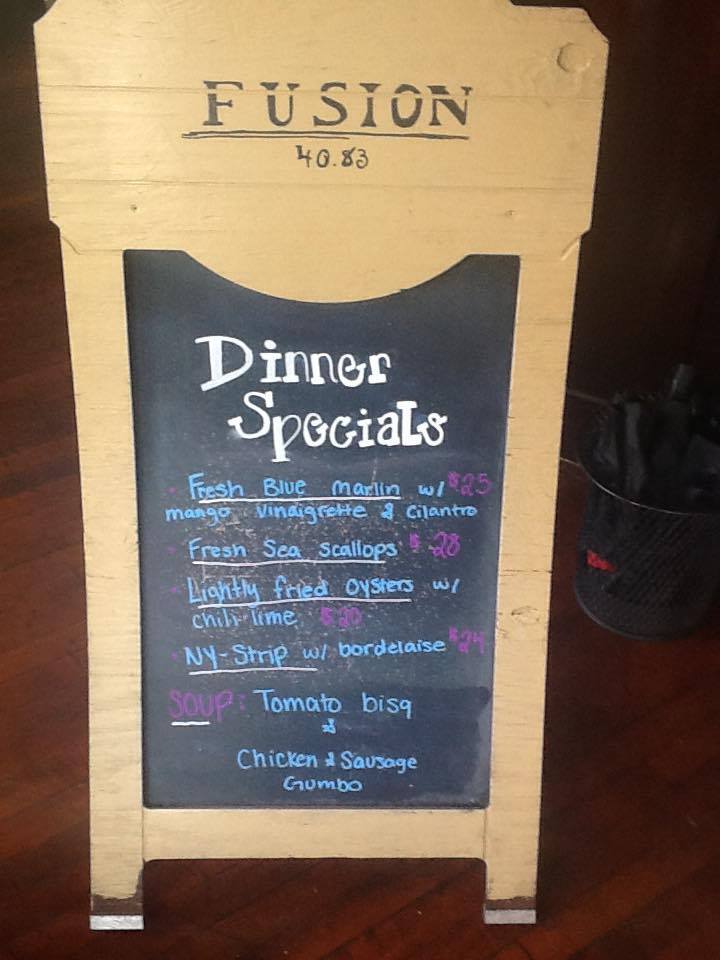 FUSION
40.83
Dinner
Specials
· Fresh Blue marlin w/ $25
mango vinaigrette & Cilantro
· Fresh Sea scallops $28
· Lightly fried oysters w/
chili lime $20
· NY-Strip w/ bordelaise $24
SOUP: Tomato bisq
&
Chicken & Sausage
Gumbo